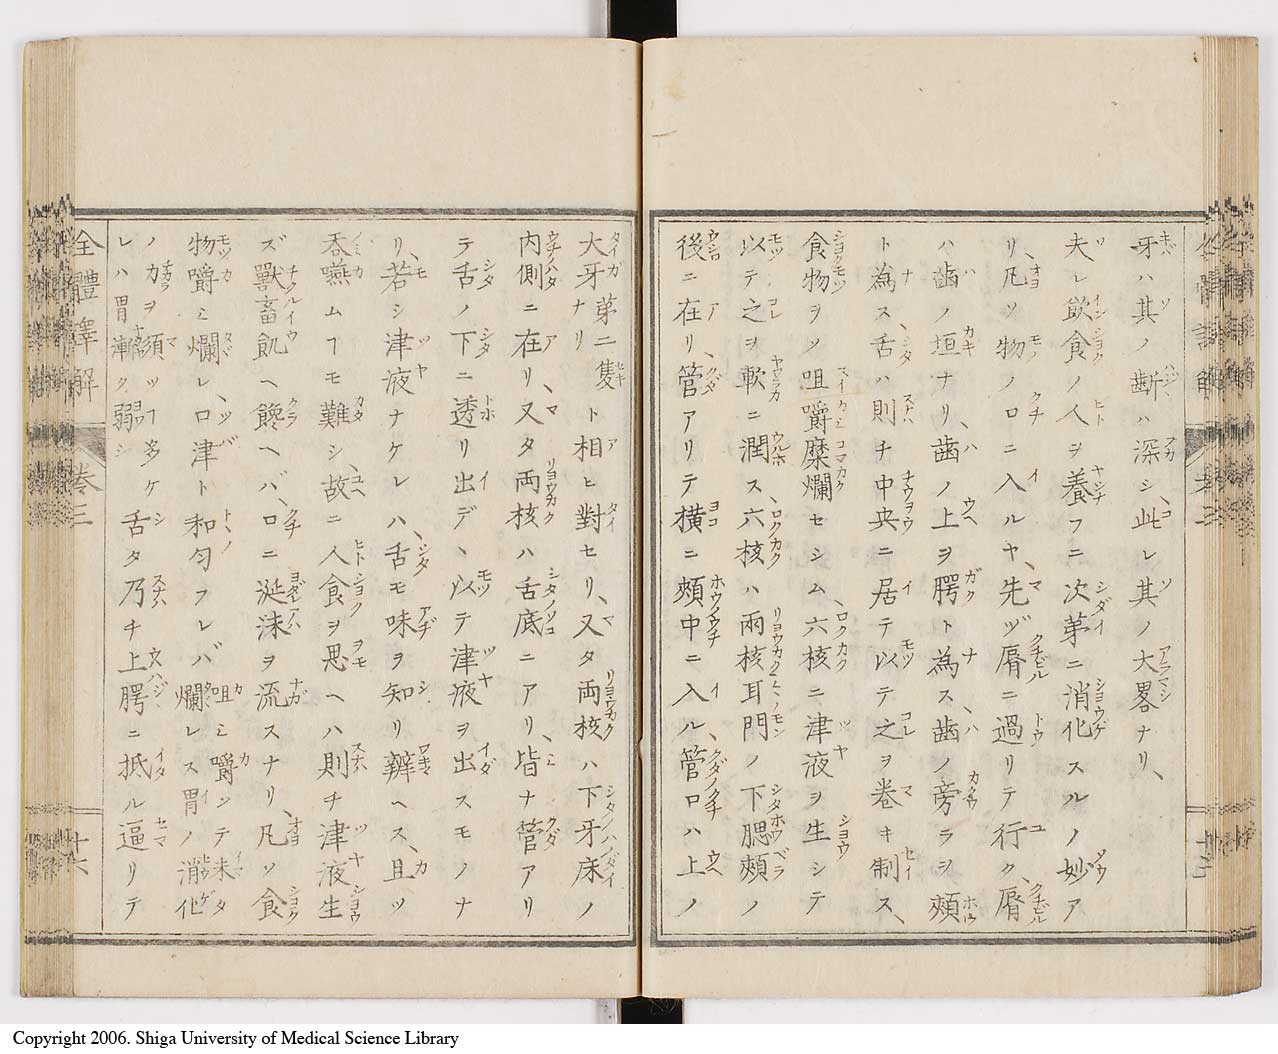 牙ハ其ノ齗ハ深シ、此レ其ノ大畧ナリ、
夫レ飲食ノ人ヲ養フニ次第ニ消化スルノ妙ア
リ、凡ソ物ノ口ニ入ルヤ、先ヅ脣ニ過リテ行ク、脣
ハ齒ノ垣ナリ、齒ノ上ヲ腭ト為ス、齒ノ旁ラヲ頰
ト為ス、舌ハ則チ中央ニ居テ以テ之ヲ卷キ制ス、
食物ヲソ咀嚼糜爛セシム、六核ニ津液ヲ生シテ
以テ之ヲ軟ニ潤ス、六核ハ兩核耳門ノ下腮頰ノ
後ニ在リ、管アリテ橫ニ頰中ニ入ル、管口ハ上ノ
大牙ナリ第二隻ト相ヒ對セリ、又タ両核ハ下牙床ノ
内側ニ在リ、又タ両核ハ舌底ニアリ、皆ナ管アリ
テ舌ノ下ニ透リ出デ、以テ津液ヲ出スモノナ
リ、若シ津液ナケレハ、舌モ味ヲ知リ辨ヘス、且ツ
呑嚥ムヿモ難シ、故ニ人食ヲ思ヘハ則チ津液生
ズ、獸畜飢ヘ饞ヘバ、口ニ涎沫ヲ流スナリ、凡ソ食
物嚼ミ爛レ、口津ト和匀フレバ爛レス胃ノ消化
咀ミ嚼ンテ未タ
ノカヲ須ツヿ多ケ
レハ胃漸ク弱シ
舌タ乃チ上腭ニ抵ル逼リテ
全體譯解
卷三
十六
Copyright 2006. Shiga University of Medical Science Library